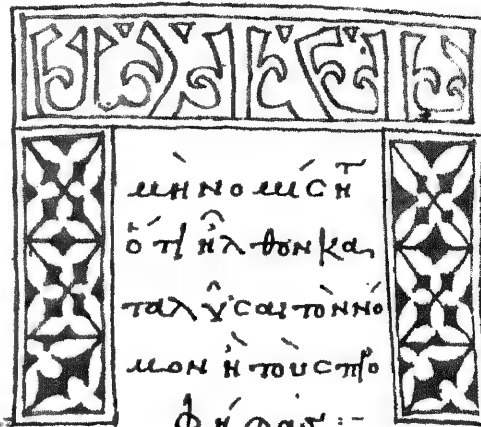 μὴ νομίσητ
ὅτι ἦλθον κα
ταλῦσαι τὸν νό
μον ἢ τοὺς προ
φήτας :–